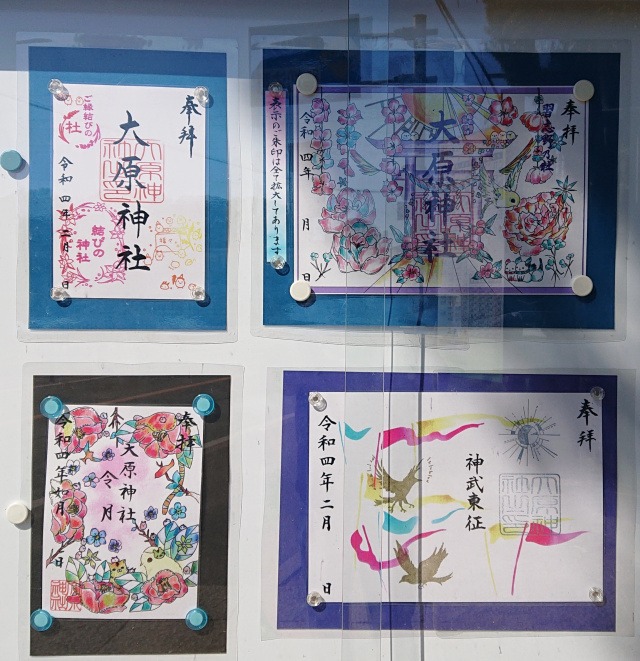 奉拝
大原神社
ご縁結びの
社
結びの
神社
令和四年二月 日
表示のご朱印は全て拡大してあります
奉拝
大原神社
令和四年 月 日
奉拝
大原神社
令和四年如月 日
奉拝
神武東征
令和四年二月 日